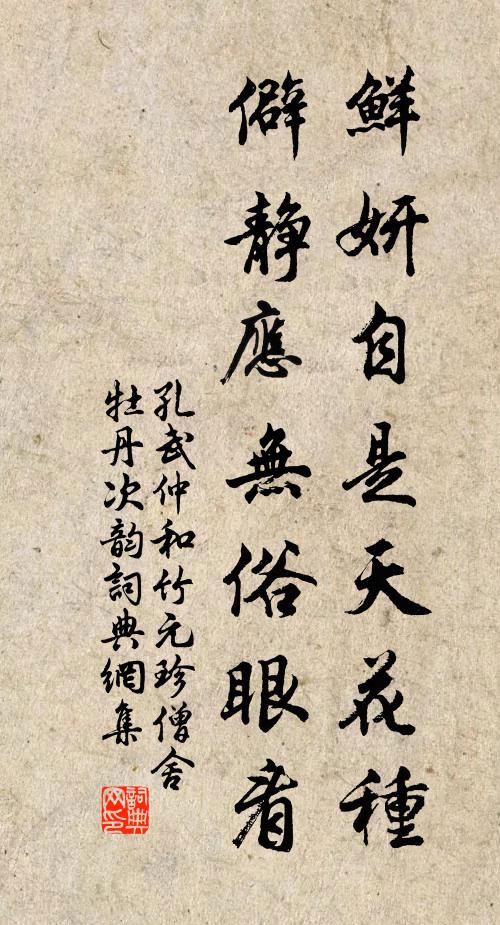 鮮妍自是天花種
僻静應無俗眼看
孔武仲和竹元珍僧舍
牡丹次韵詞典網集
詞典
网印